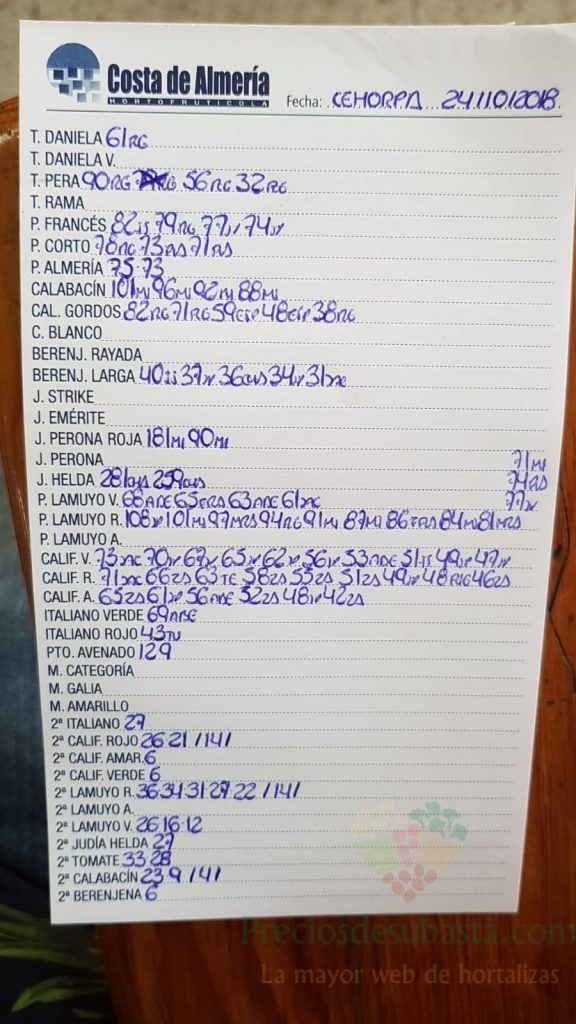 Costa de Almería
HORTOFRUTICOLA
Fecha: CEHORPA 24/10/2018
T. DANIELA 61RG
T. DANIELA V.
T. PERA 90RG 56RG 32RG
T. RAMA
P. FRANCÉS 82 79RG 77 74
P. CORTO 78RG 73 71
P. ALMERÍA 75·73
CALABACÍN 101MJ 96MJ 92MJ 88MJ
CAL. GORDOS 82RG 71RG 59 48 38RG
C. BLANCO
BERENJ. RAYADA
BERENJ. LARGA 40 37 36 34 31
J. STRIKE
J. EMÉRITE
J. PERONA ROJA 181MJ 90MJ
J. PERONA 71MJ
J. HELDA 281 259 74
P. LAMUYO V. 68ABE 65 63ABE 61 77
P. LAMUYO R. 108 101MJ 97 94RG 91MJ 87MJ 86 84MJ 81
P. LAMUYO A.
CALIF. V. 73 70 67 65 62 56 53ABE 51 49 47
CALIF. R. 71 66ZS 63 58ZS 55ZS 51ZS 49 48RG 46ZS
CALIF. A. 65ZS 61 56ABE 52ZS 48 42ZS
ITALIANO VERDE 69ABE
ITALIANO ROJO 43
PTO. AVENADO 129
M. CATEGORÍA
M. GALIA
M. AMARILLO
2ª ITALIANO 27
2ª CALIF. ROJO 26·21 /14/
2ª CALIF. AMAR. 6
2ª CALIF. VERDE 6
2ª LAMUYO R. 36·34·31·27·22 /14/
2ª LAMUYO A.
2ª LAMUYO V. 26·16·12
2ª JUDÍA HELDA 27
2ª TOMATE 33·28
2ª CALABACÍN 23·9 /4/
2ª BERENJENA 6
Preciosdesubasta.com
La mayor web de hortalizas